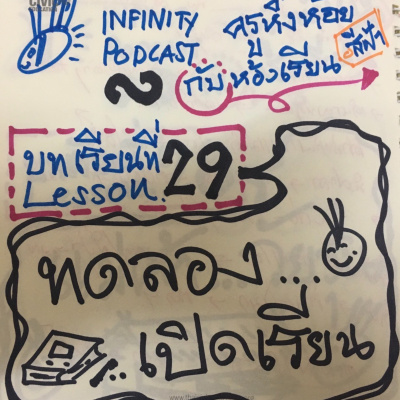 INFINITY
PODCAST
ครูหิ่งห้อย
กับห้องเรียน
สีฟ้า
บทเรียนที่
Lesson. 29
ทดลอง...
...เปิดเรียน